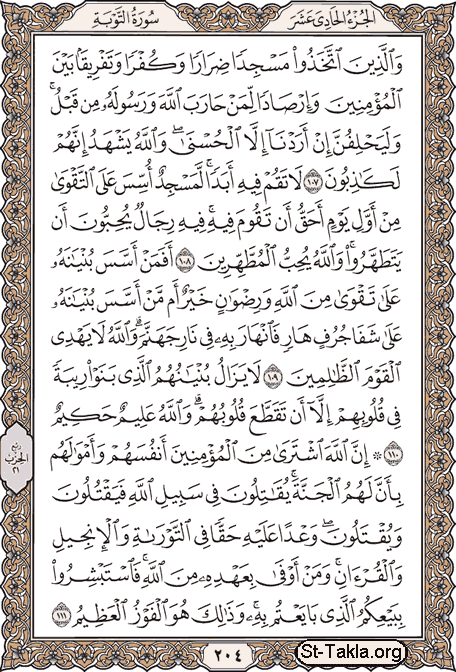 الجُزْءُ الحَادِى عَشَرَ سُورَةُ التَّوْبَةِ
وَالَّذِينَ اتَّخَذُوا مَسْجِدًا ضِرَارًا وَكُفْرًا وَتَفْرِيقًا بَيْنَ
الْمُؤْمِنِينَ وَإِرْصَادًا لِّمَنْ حَارَبَ اللَّهَ وَرَسُولَهُ مِن قَبْلُ ۚ
وَلَيَحْلِفُنَّ إِنْ أَرَدْنَا إِلَّا الْحُسْنَىٰ ۖ وَاللَّهُ يَشْهَدُ إِنَّهُمْ
لَكَاذِبُونَ ١٠٧ لَا تَقُمْ فِيهِ أَبَدًا ۚ لَّمَسْجِدٌ أُسِّسَ عَلَى التَّقْوَىٰ
مِنْ أَوَّلِ يَوْمٍ أَحَقُّ أَن تَقُومَ فِيهِ ۚ فِيهِ رِجَالٌ يُحِبُّونَ أَن
يَتَطَهَّرُوا ۚ وَاللَّهُ يُحِبُّ الْمُطَّهِّرِينَ ١٠٨ أَفَمَنْ أَسَّسَ بُنْيَانَهُ
عَلَىٰ تَقْوَىٰ مِنَ اللَّهِ وَرِضْوَانٍ خَيْرٌ أَم مَّنْ أَسَّسَ بُنْيَانَهُ
عَلَىٰ شَفَا جُرُفٍ هَارٍ فَانْهَارَ بِهِ فِى نَارِ جَهَنَّمَ ۗ وَاللَّهُ لَا يَهْدِى
الْقَوْمَ الظَّالِمِينَ ١٠٩ لَا يَزَالُ بُنْيَانُهُمُ الَّذِى بَنَوْا رِيبَةً
فِى قُلُوبِهِمْ إِلَّا أَن تَقَطَّعَ قُلُوبُهُمْ ۗ وَاللَّهُ عَلِيمٌ حَكِيمٌ
١١٠ ۞ إِنَّ اللَّهَ اشْتَرَىٰ مِنَ الْمُؤْمِنِينَ أَنفُسَهُمْ وَأَمْوَالَهُم
بِأَنَّ لَهُمُ الْجَنَّةَ ۚ يُقَاتِلُونَ فِى سَبِيلِ اللَّهِ فَيَقْتُلُونَ
وَيُقْتَلُونَ ۖ وَعْدًا عَلَيْهِ حَقًّا فِى التَّوْرَاةِ وَالْإِنجِيلِ
وَالْقُرْءَانِ ۚ وَمَنْ أَوْفَىٰ بِعَهْدِهِ مِنَ اللَّهِ ۚ فَاسْتَبْشِرُوا
بِبَيْعِكُمُ الَّذِى بَايَعْتُم بِهِ ۚ وَذَٰلِكَ هُوَ الْفَوْزُ الْعَظِيمُ ١١١
ربع
الحزب
٢١
٢٠٤
St-Takla.org